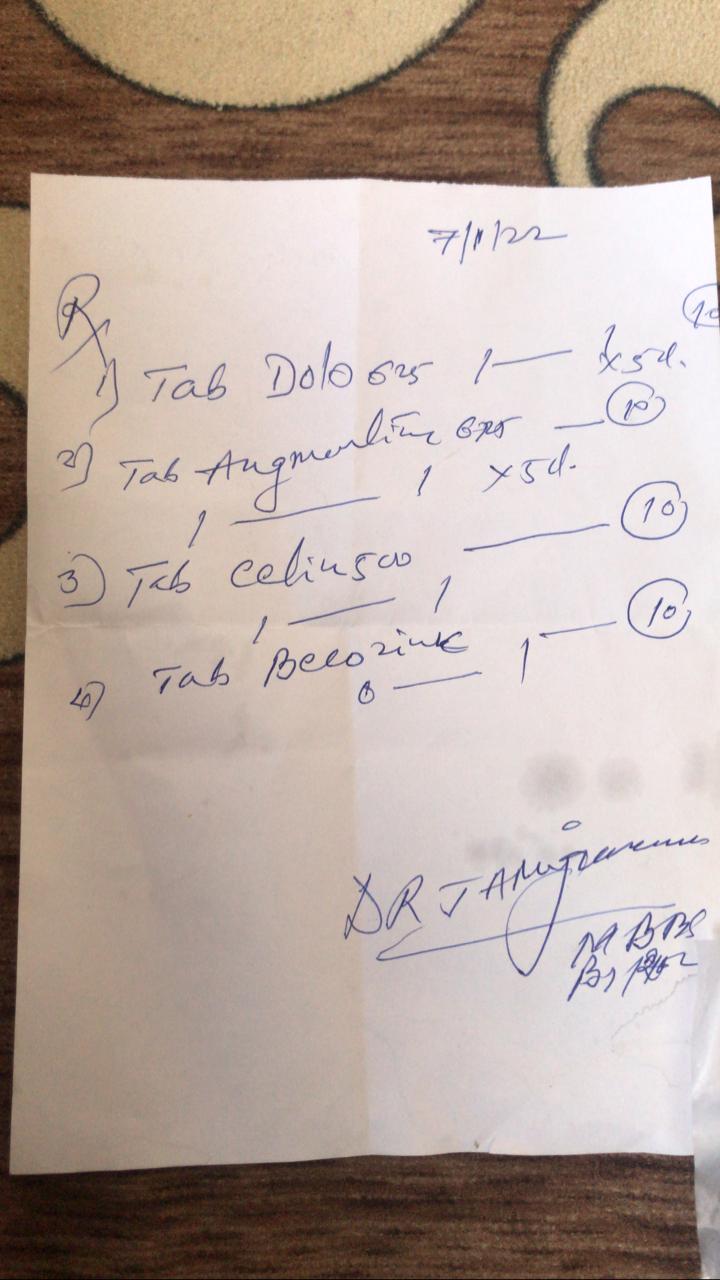 7/11/22
Rx
10
1) Tab Dolo 625 1 — 1 x 5d.
2) Tab Augmentin 625 — 10
1 — 1 x 5d.
3) Tab Celin 500 — 10
1 — 1
4) Tab Becozinc — 10
0 — 1
DR J A
MBBS